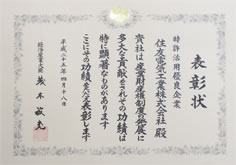 表彰状
特許活用優良企業
住友電気工業株式会社殿
貴社は産業財産権制度の発展に
多大な貢献をされその功績は
特に顕著なものがあります
ここにその功績をたたえ表彰します
平成二十五年四月十八日
経済産業大臣 茂木敏充